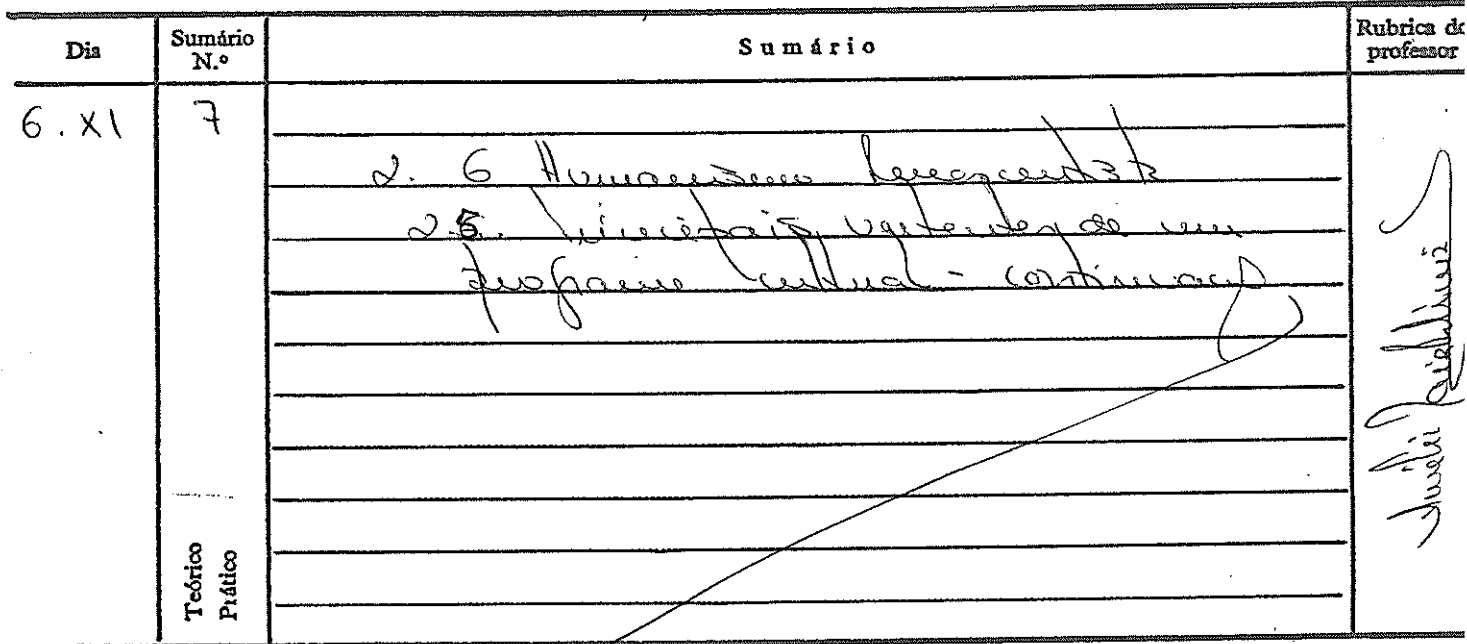 Dia
Sumário N.º
Sumário
Rubrica do professor
6.XI
7
2. O Humanismo Renascentista
2.5. Principais vertentes de um
programa cultural - continuação
Teórico
Prático